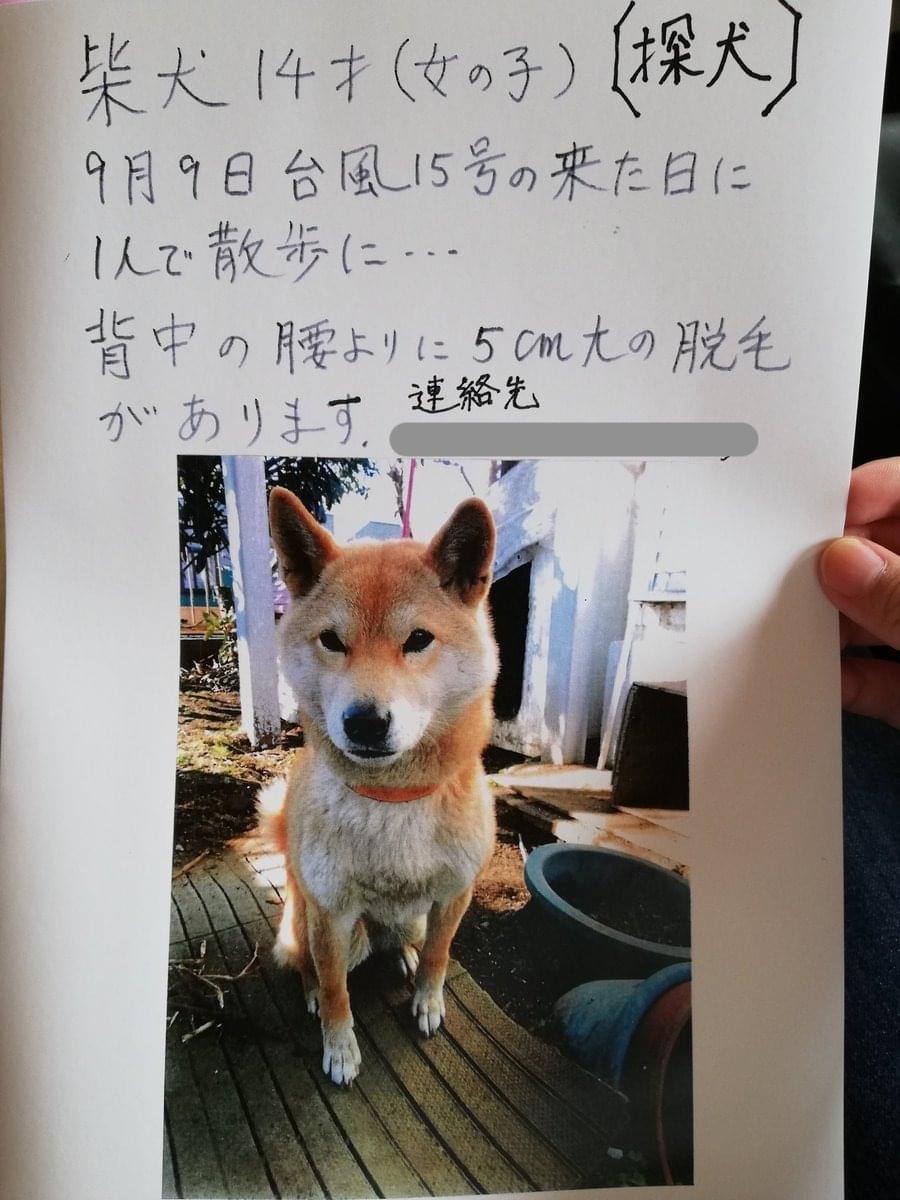 柴犬 14才(女の子) (探犬)
9月9日 台風15号の来た日に
1人で散歩に…
背中の腰よりに 5cm大の脱毛
があります.
連絡先